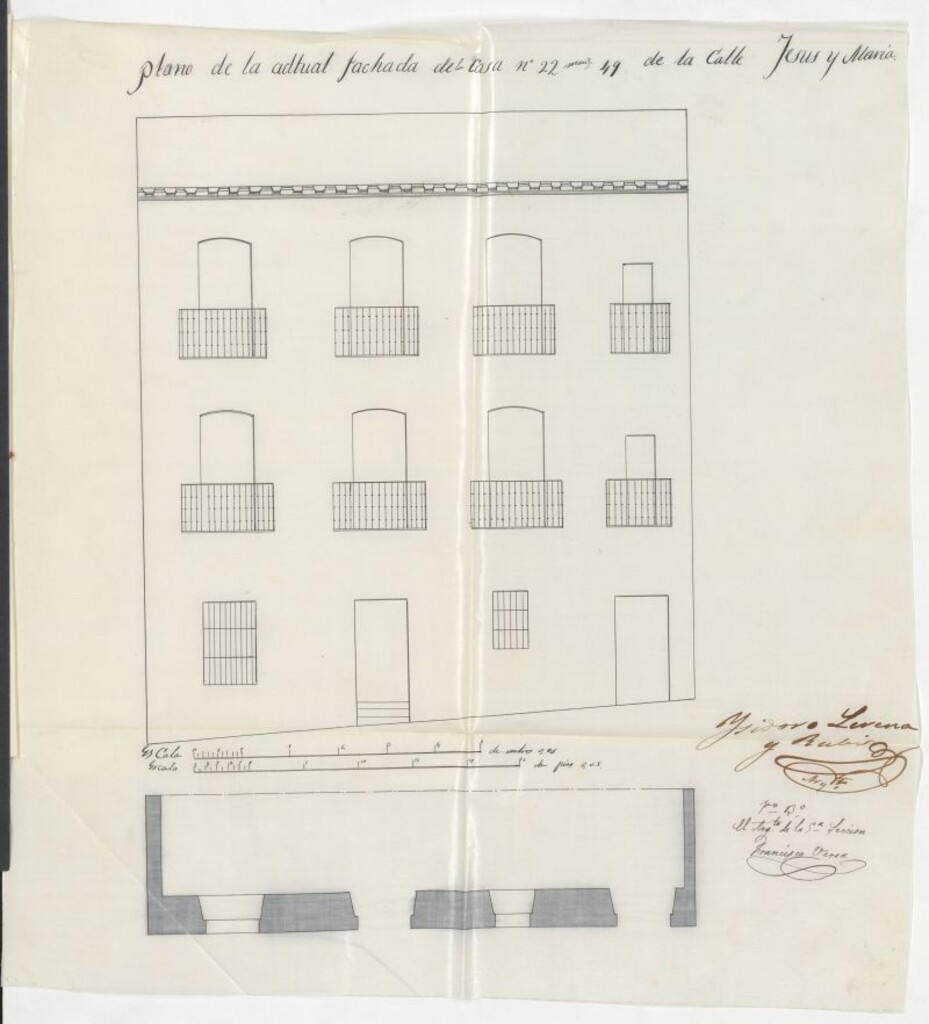 plano de la adtual fachada de la Casa nº 22 manz. 49 de la Calle Jesus y Maria.
Es Cala de metros
Escala de pies
Ysidoro Llerena
y Rubio
Arqto
Vº Bº
El Arqto de la 5ª Seccion
Francisco Verea